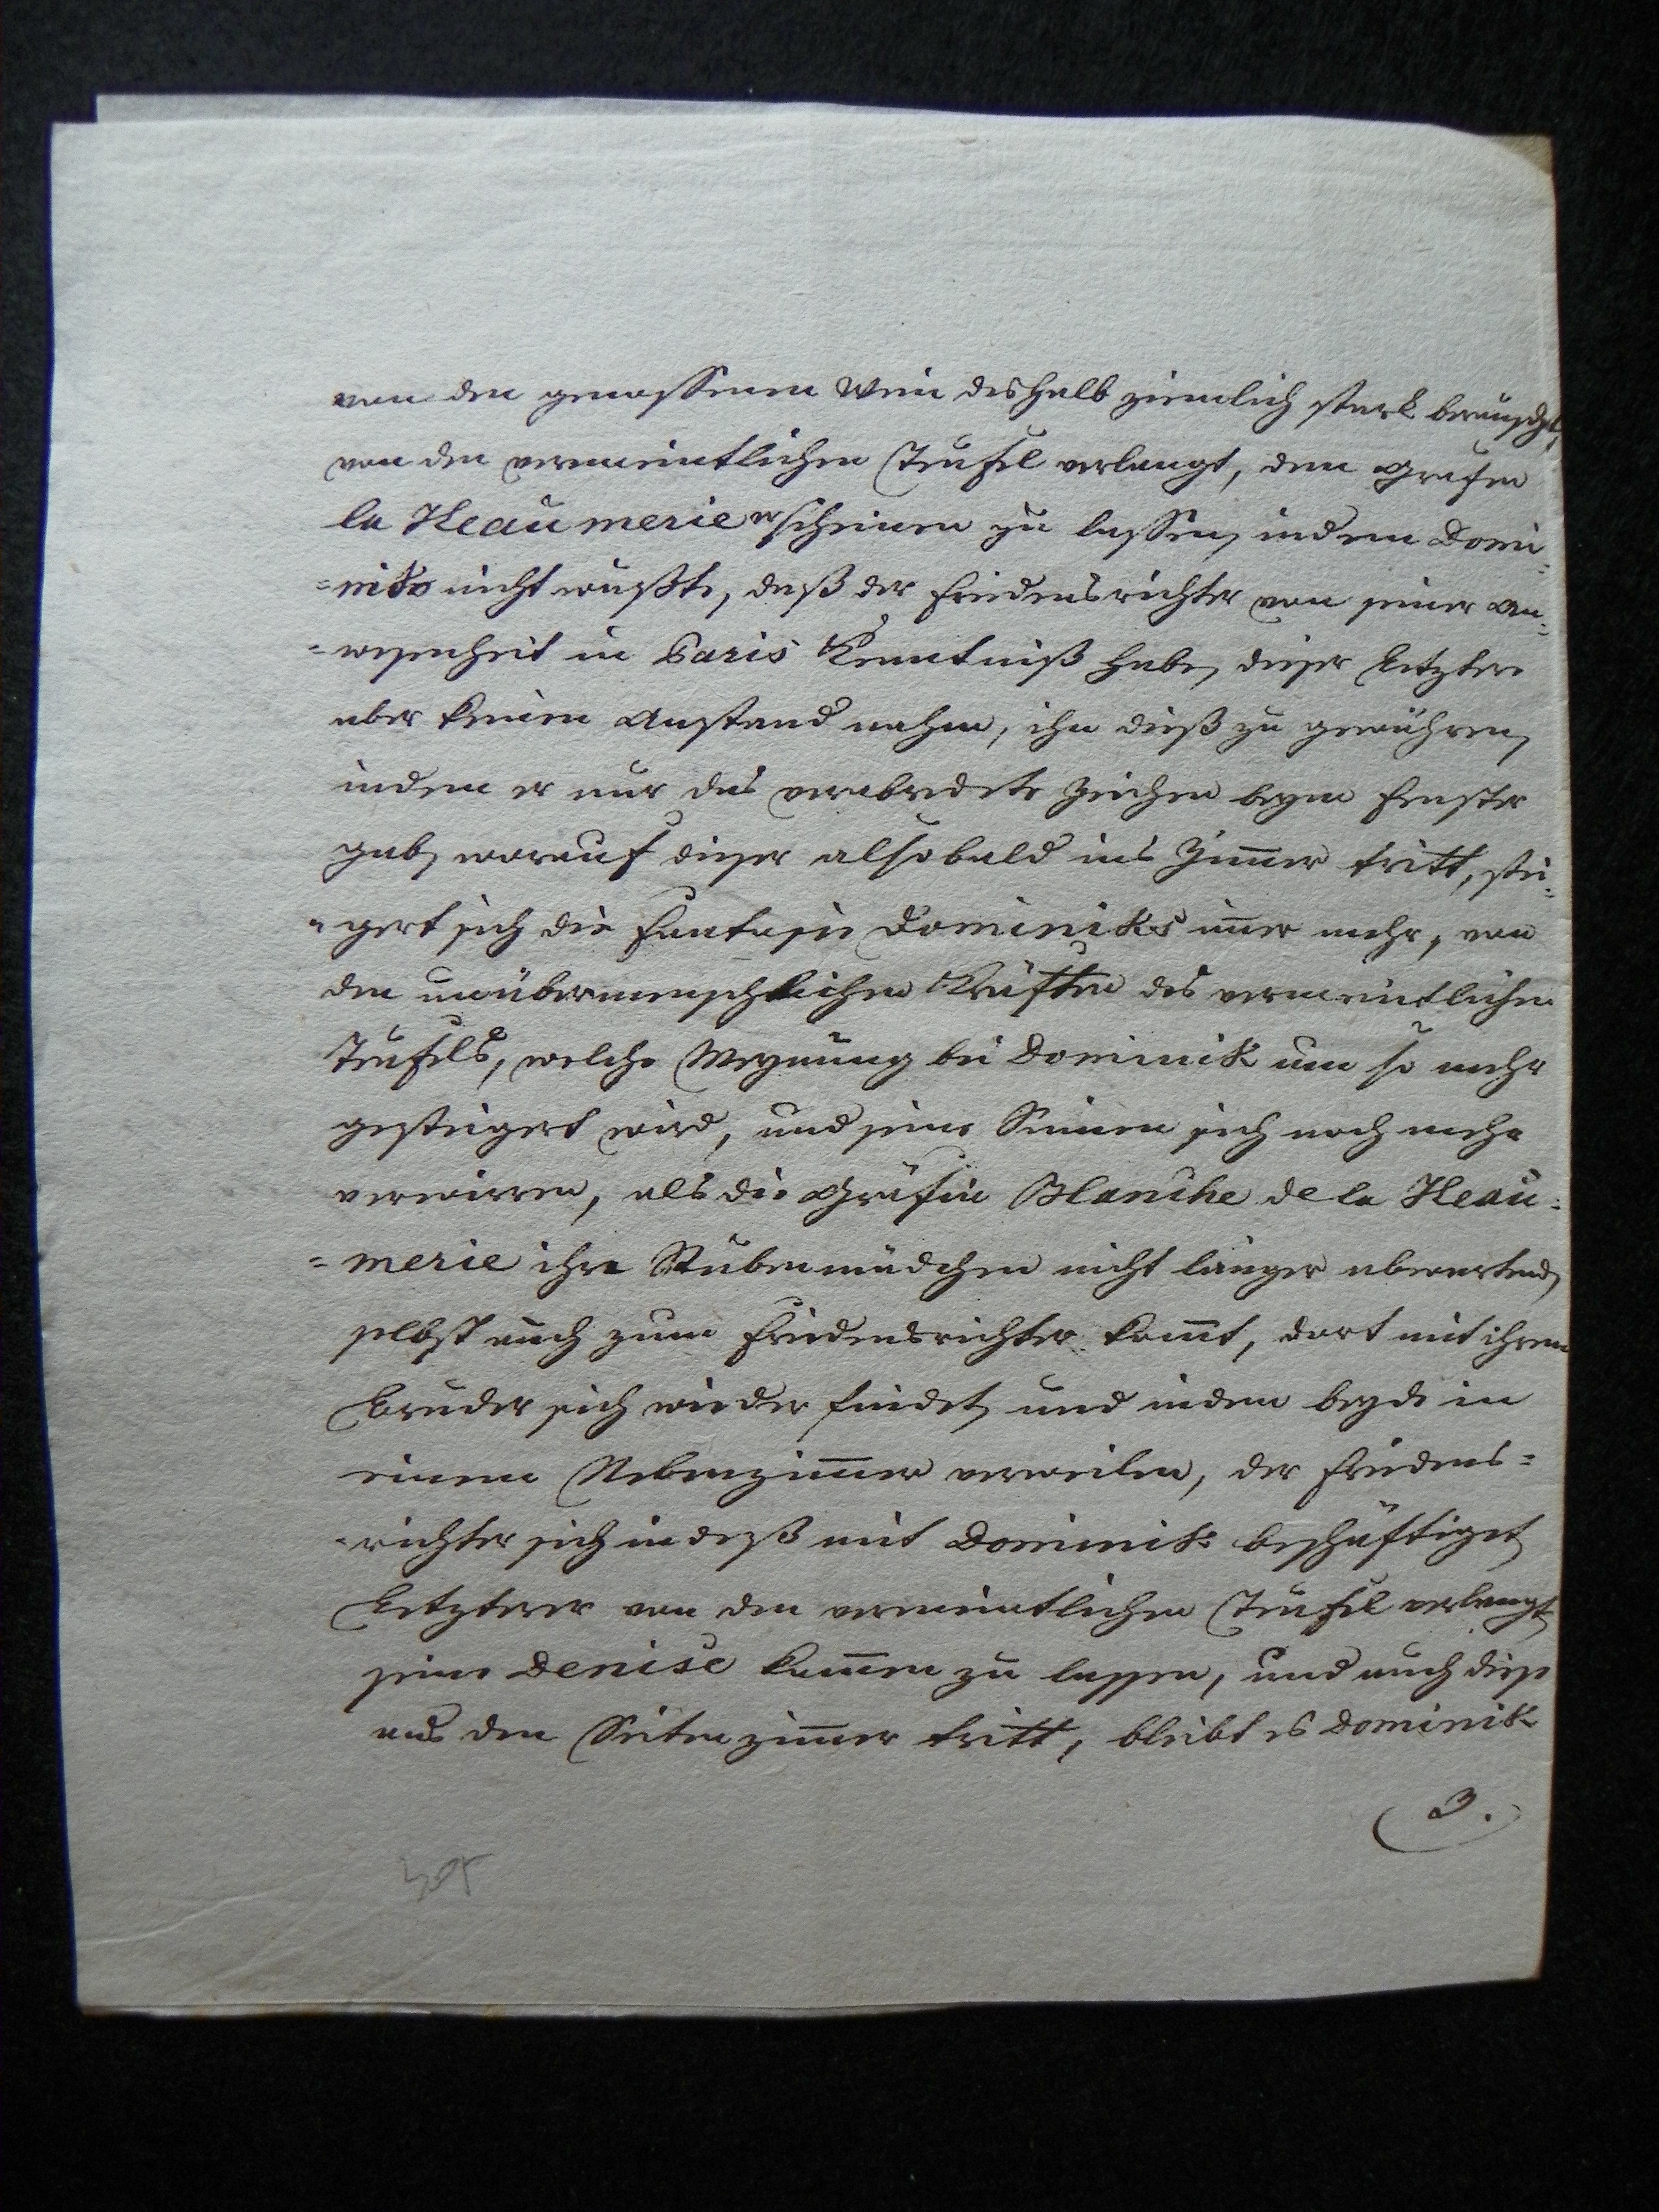 von den genossenen Wein deshalb ziemlich stark berauscht,
von den vermeintlichen Teufel verlangt, den Grafen
la Heaumerie erscheinen zu lassen, indem Domi-
=nik nicht wußte, daß der Friedensrichter von seiner An=
=wesenheit in Paris Kenntniß habe, dieser Letztere
aber keinen Anstand nahm, ihn dieß zu gewähren,
indem er nur das verabredete Zeichen beym Fenster
gab, worauf dieser alsobald ins Zim̅er tritt, stei=
=gert sich die Fantasie Dominiks im̅er mehr, von
den unübermenschlichen Kräften des vermeintlichen
Teufels, welche Meynung bei Dominik um so mehr
gesteigert wird, und seine Sinnen sich noch mehr
verwirren, als die Gräfin Blanche de la Heau=
=merie ihre Stubenmädchen nicht länger abwartend,
selbst auch zum Friedensrichter kom̅t, dort mit ihren
Bruder sich wieder findet, und indem beyde in
einem Nebenzim̅er verweilen, der Friedens=
=richter sich indeß mit Dominik beschäftiget,
Letzterer von den vermeintlichen Teufel verlangt,
seine Denise kom̅en zu lassen, und auch diese
aus den Seitenzim̅er tritt, bleibt es Dominik